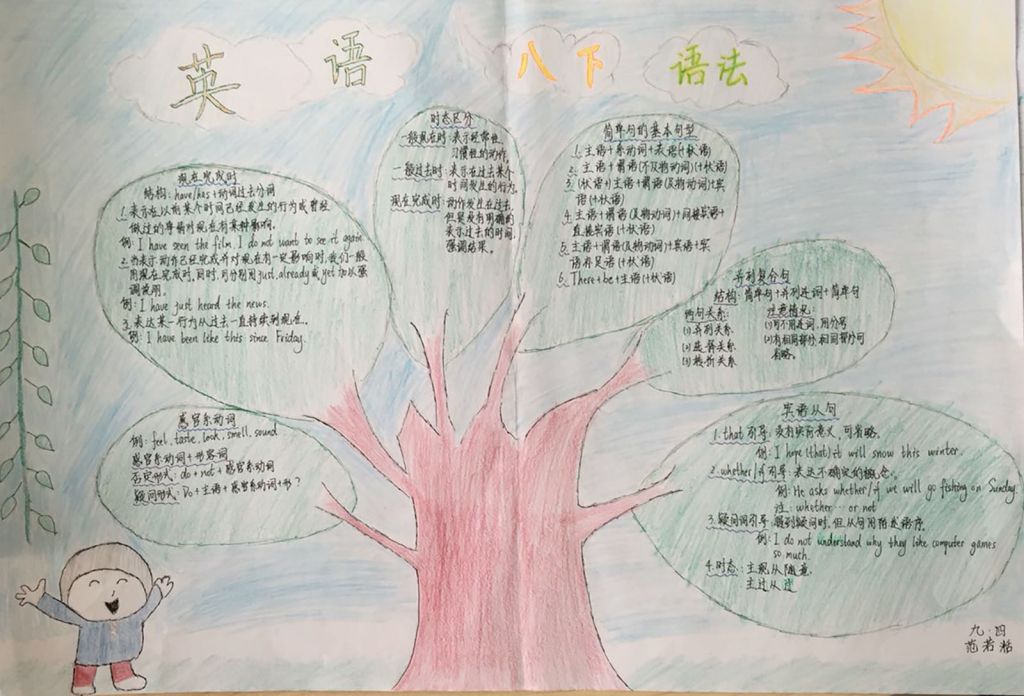 英语 八下 语法
现在完成时
结构: have/has+动词过去分词
1.表示在以前某个时间已经发生的行为或曾经
做过的事情对现在有某种影响。
例: I have seen the film. I do not want to see it again.
2.当表示动作已经完成并对现在有一定影响时,我们一般
用现在完成时,同时,可分别用just, already或yet加以强
调说明。
例: I have just heard the news.
3.表达某一行为从过去一直持续到现在。
例: I have been like this since Friday.
时态区分
一般现在时:表示经常性、
习惯性的动作。
一般过去时:表示在过去某个
时间发生的行为。
现在完成时:动作发生在过去,
但是没有明确的
表示过去的时间,
强调结果。
简单句的基本句型
1.主语+系动词+表语(+状语)
2.主语+谓语(不及物动词)(+状语)
3.(状语+)主语+谓语(及物动词)+宾
语(+状语)
4.主语+谓语(及物动词)+间接宾语+
直接宾语(+状语)
5.主语+谓语(及物动词)+宾语+宾
语补足语(+状语)
6.There+be+主语(+状语)
并列复合句
结构:简单句+并列连词+简单句
两句关系:
(1)并列关系
(2)选择关系
(3)转折关系
注意情况:
(1)可不用连词,用分号
(2)有相同部分,相同部分可
省略。
感官系动词
例: feel, taste, look, smell, sound
感官系动词+形容词
否定形式: do+not+感官系动词
疑问形式: Do+主语+感官系动词+形?
宾语从句
1.that引导:没有实际意义,可省略。
例: I hope (that) it will snow this winter.
2.whether/if引导:表达不确定的概念。
例: He asks whether/if we will go fishing on Sunday.
注: whether…or not
3.疑问词引导:碰到疑问时,但从句用陈述语序。
例: I do not understand why they like computer games
so much.
4.时态:主现从随意,
主过从过
九·四
范若